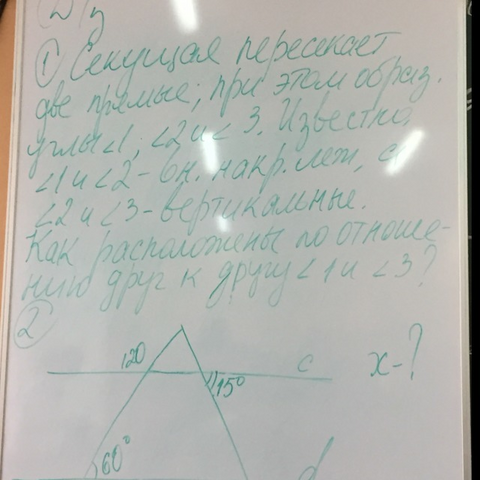 Д/з
① Секущая пересекает
две прямые; при этом образ.
углы <1, <2 и <3. Известно
<1 и <2 - вн. накр. леж, а
<2 и <3 - вертикальные.
Как расположены по отноше-
нию друг к другу <1 и <3?
②
120 15° c x-?
60° d